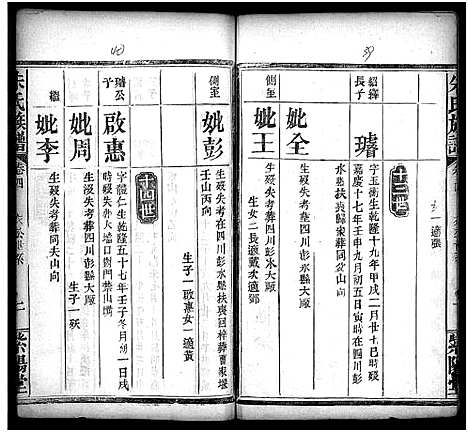 女一適張
十三世
紹舜長子
璿
字玉衡生乾隆十九年甲戌二月廿七日巳時歿
嘉慶十七年壬申九月初五日寅時歿四川彭
水縣扶喪歸家葬同么山向
妣全
生歿失考葬四川彭水縣
側室
妣王
生歿失考葬四川彭縣大厰
生女二長適戴次適鄧
側室
妣彭
生歿失考在四川彭水縣扶喪回梓葬曹家塅
壬山丙向
生子一啟惠女一適黃
十四世
璿公子
啟惠
字體仁生乾隆五十七年壬子冬月初一日戌
時歿失考葬四川大厰禁山
妣周
生歿失考葬四川彭縣大厰
生子一殀
繼
妣李
生歿失考葬同夫山向
朱氏族譜
卷四
紫陽堂